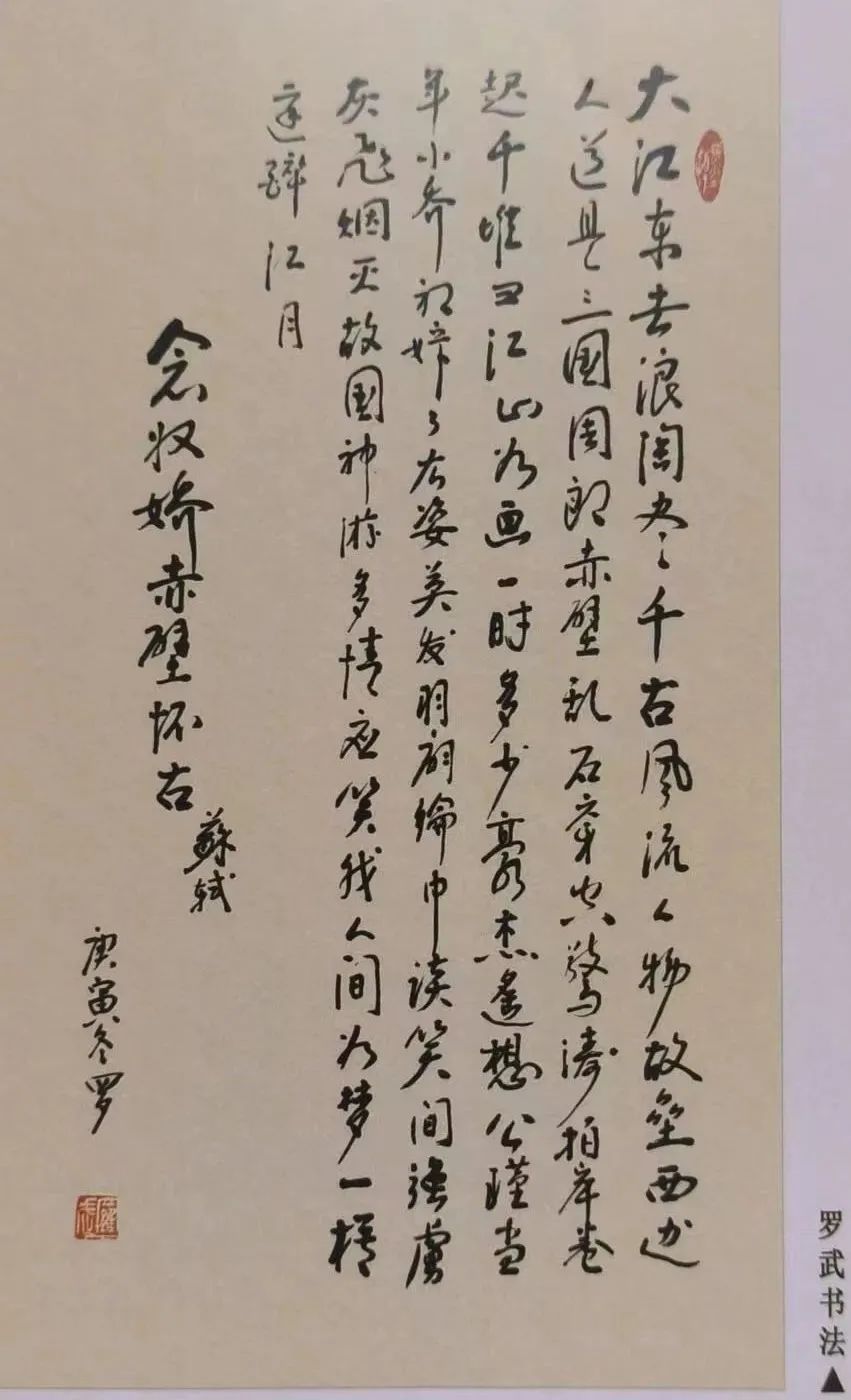 大江东去浪淘尽千古风流人物故垒西边
人道是三国周郎赤壁乱石穿空驚涛拍岸卷
起千堆雪江山如画一时多少豪杰遥想公瑾当
年小乔初嫁了雄姿英发羽扇纶巾谈笑间强虏
灰飞烟灭故国神游多情应笑我人间如梦一樽
还酹江月
念奴娇赤壁怀古
蘇轼
庚寅冬罗
罗武书法▲